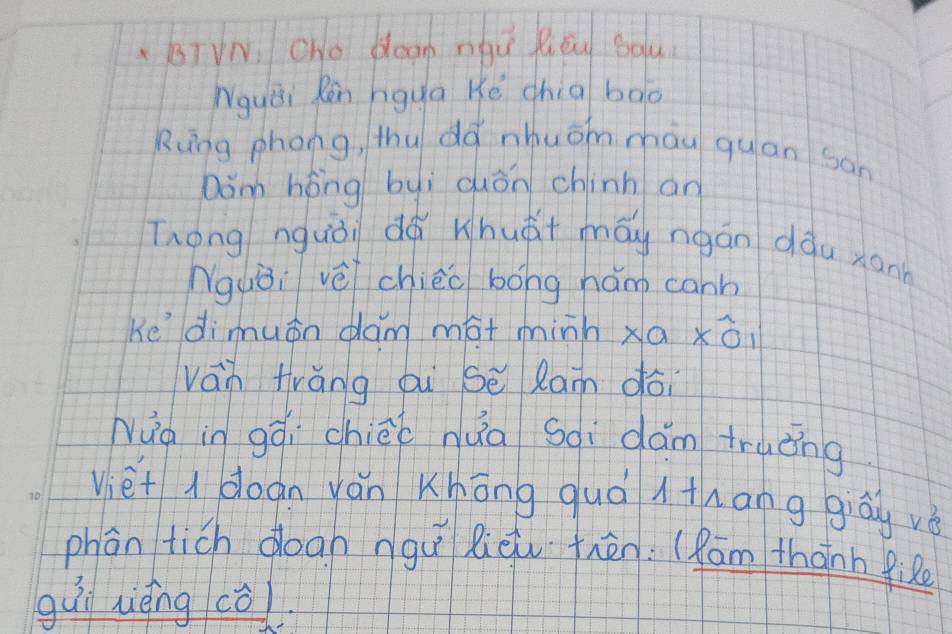 * BTVN: Cho đoạn ngữ liệu sau:
Người lên ngựa kẻ chia bào
Rừng phong, thu đã nhuốm màu quan san
Dặm hồng bụi cuốn chinh an
Trông người đã khuất mấy ngàn dâu xanh
Người về chiếc bóng năm canh
Kẻ đi muôn dặm một mình xa xôi
Vầng trăng ai sẻ làm đôi
Nửa in gối chiếc nửa soi dặm trường.
Viết 1 đoạn văn không quá 1 trang giấy về
phân tích đoạn ngữ liệu trên. (làm thành file
gửi riêng cô).